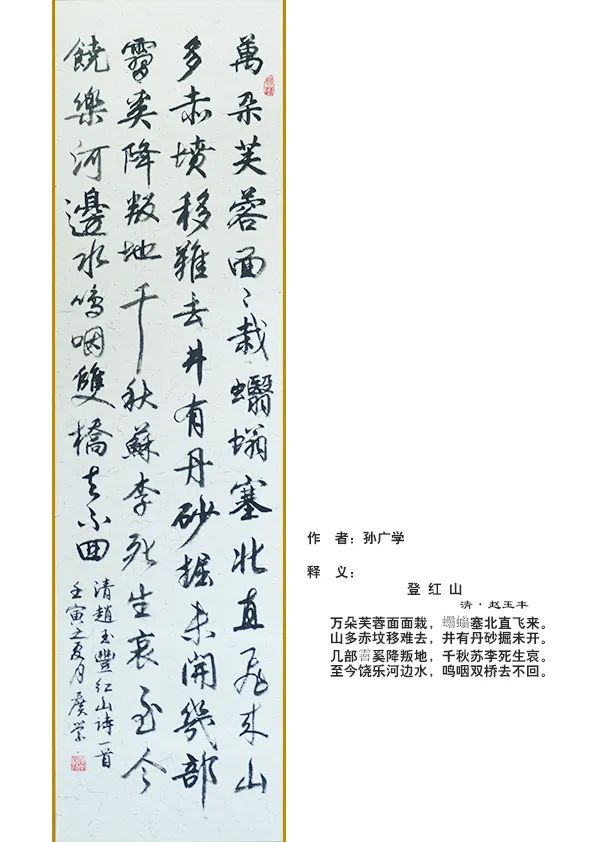 萬朵芙蓉面々栽蠮螉塞北直飛来山
多赤墳移難去井有丹砂掘未開幾部
霫奚降叛地千秋蘇李死生哀至今
饒樂河邊水嗚咽雙橋去不回
清趙玉豐红山诗一首
壬寅之夏月廣学
作 者：孙广学
释 义：
登 红 山
清·赵玉丰
万朵芙蓉面面栽，蠮螉塞北直飞来。
山多赤坟移难去，井有丹砂掘未开。
几部霫奚降叛地，千秋苏李死生哀。
至今饶乐河边水，呜咽双桥去不回。